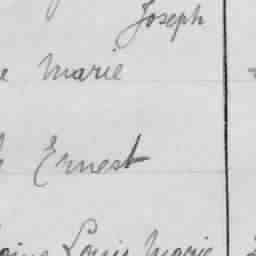 Joseph
Marie
Ernest
Louis Marie